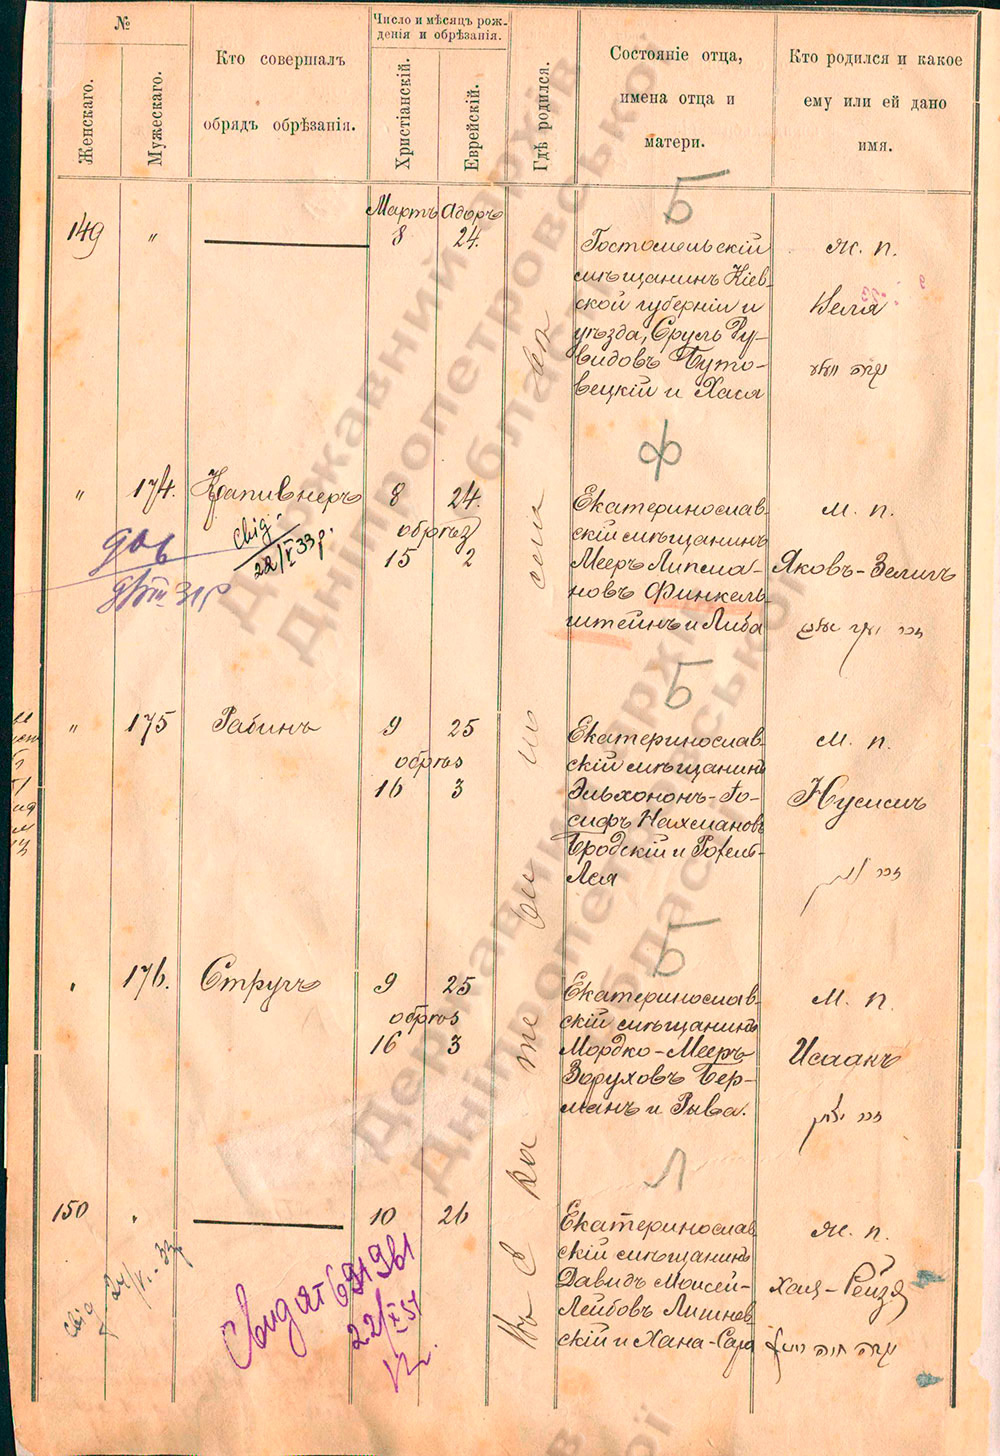 №
Женскаго.
Мужескаго.
Кто совершалъ
обрядъ обрѣзанія.
Число и мѣсяцъ рож-
денія и обрѣзанія.
Христіанскій.
Еврейскій.
Гдѣ родился.
Состояніе отца,
имена отца и
матери.
Кто родился и какое
ему или ей дано
имя.
Мартъ Адоръ
Б
149 " 8 24.
Гостомельскій
мѣщанинъ Кіев-
ской губерніи и
уѣзда, Сруль Ру-
видовъ Буто-
вецкій и Хася
ж. п.
Веля
Ф
" 174. Крапивнеръ 8 24.
обрѣз
15 2
свід.
22/V 33 р.
Екатеринослав-
скій мѣщанинъ
Мееръ Липма-
новъ Финкель-
штейнъ и Либа
м. п.
Яковъ-Зелигъ
Б
" 175 Рабинъ 9 25
обрѣз
16 3
Екатеринослав-
скій мѣщанинъ
Эльхононъ-Іо-
сифъ Нахмановъ
Бродскій и
Лея
м. п.
Нусимъ
זכר
Б
" 176. Стругъ 9 25
обрѣз
16 3
Екатеринослав-
скій мѣщанинъ
Мордко-Мееръ
Зоруховъ Бер-
манъ и Рыва.
м. п.
Исаакъ
זכר יצחק
Л
150 " 10 26
Екатеринослав-
скій мѣщанинъ
Давидъ Моисей-
Лейбовъ Лишнев-
скій и Хана-Сара
ж. п.
Хая-Рейзя
Державний архів
Дніпропетровської
області
Державний архів
Дніпропетровської
області